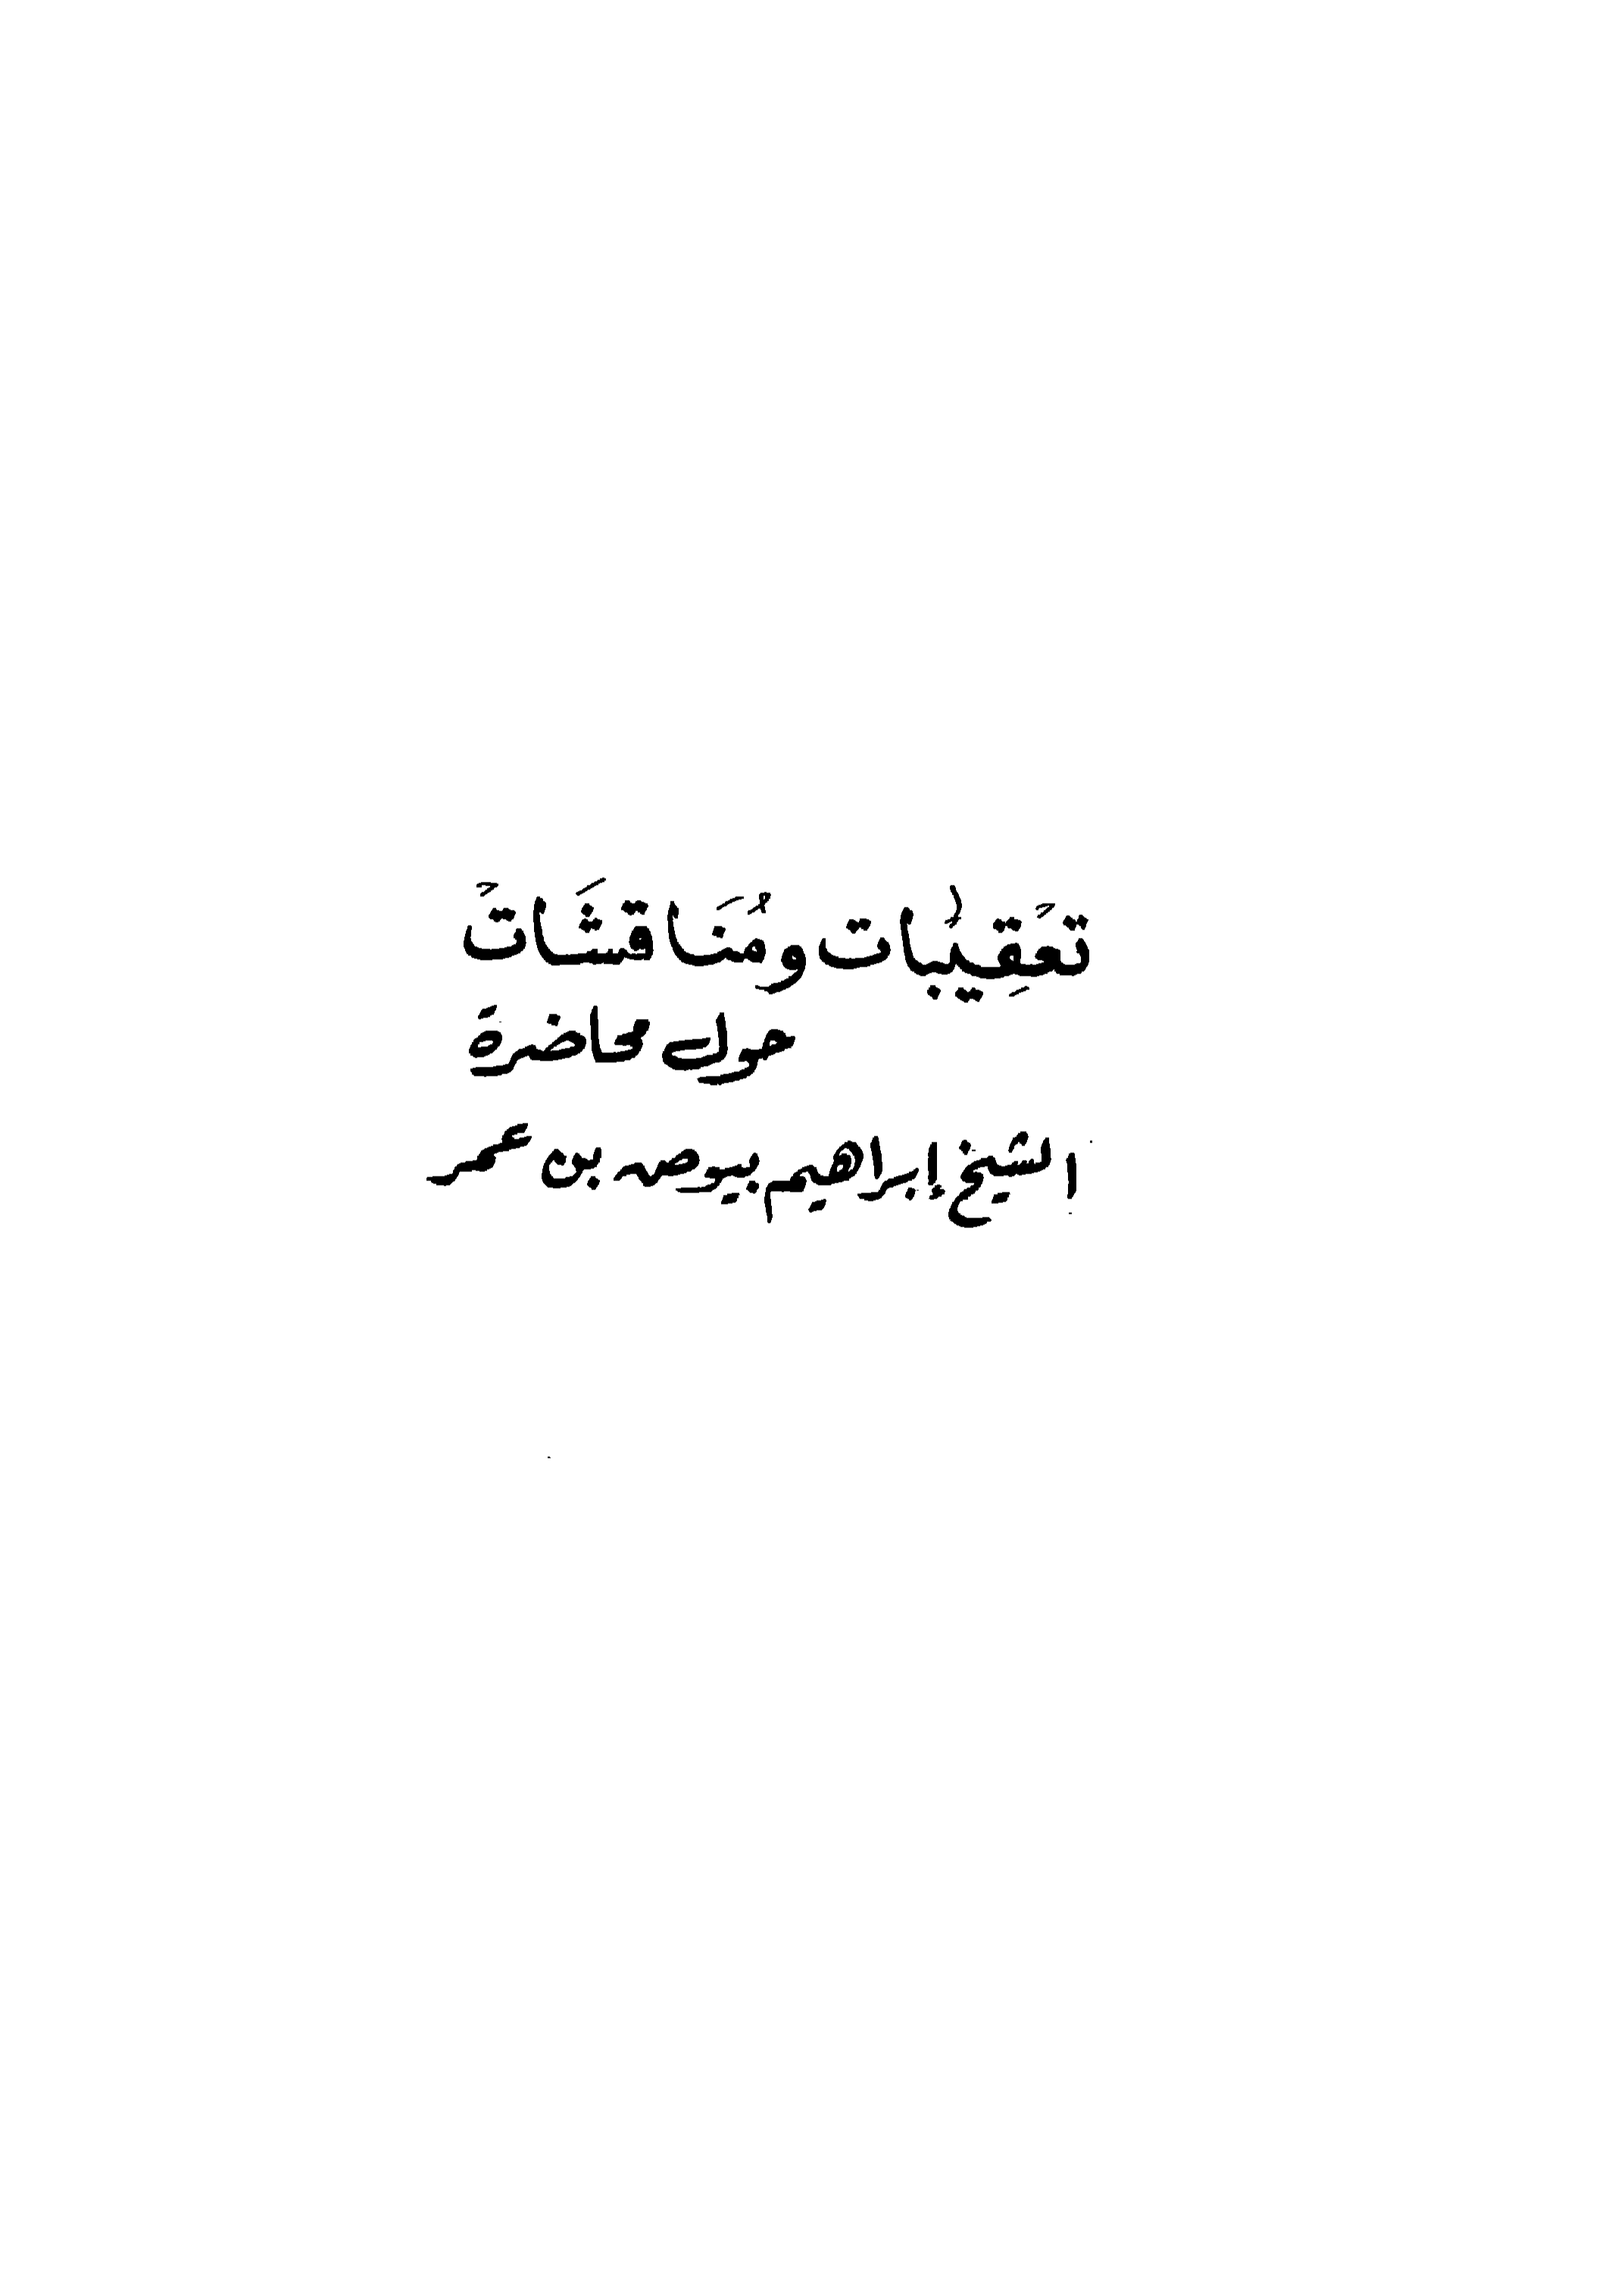 تَعقِيبات ومُنَاقشَات
حول محاضرة
الشيخ إبراهيم بيوض بن عمر